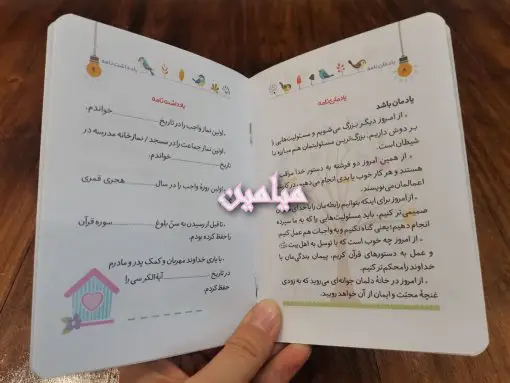 یادمان‌نامه
۸
یادمان‌نامه
یادمان باشد
. از امروز دیگر بزرگ می‌شویم و مسئولیت‌هایی را
بر دوش داریم. بزرگ‌ترین مسئولیتمان هم مبارزه با
شیطان است.
. از همین امروز دو فرشته به دستور خدا مراقب
هستند و هر کار خوب یا بدی انجام می‌دهیم، در کتاب
اعمالمان می‌نویسند.
. از امروز برای اینکه بتوانیم رابطه‌مان را با خدای
صمیمی‌تر کنیم، باید مسئولیت‌هایی را که به ما سپرده
انجام دهیم؛ یعنی گناه نکنیم و به واجبات هم عمل کنیم
. از امروز چه خوب است که با توسل به اهل بیت
و عمل به دستورهای قرآن کریم، پیمان بندگی‌مان با
خداوند را محکم‌تر کنیم.
. از امروز در خانهٔ دلمان جوانه‌ای می‌روید که به زودی
غنچهٔ محبّت و ایمان از آن خواهد رویید.
یادداشت‌نامه
۹
یادداشت‌نامه
. اولین نماز واجب را در تاریخ ............ خواندم.
. اولین نماز جماعت را در مسجد / نمازخانه مدرسه در
تاریخ ............ خواندم.
. اولین روزهٔ واجب را در سال ............ هجری قمری
. تا قبل از رسیدن به سنّ بلوغ ............ سوره قرآن
را حفظ کرده بودم.
. با یاری خداوند مهربان و کمک پدر و مادرم
در تاریخ ............ آیة الکرسی را
حفظ کردم.
میامین